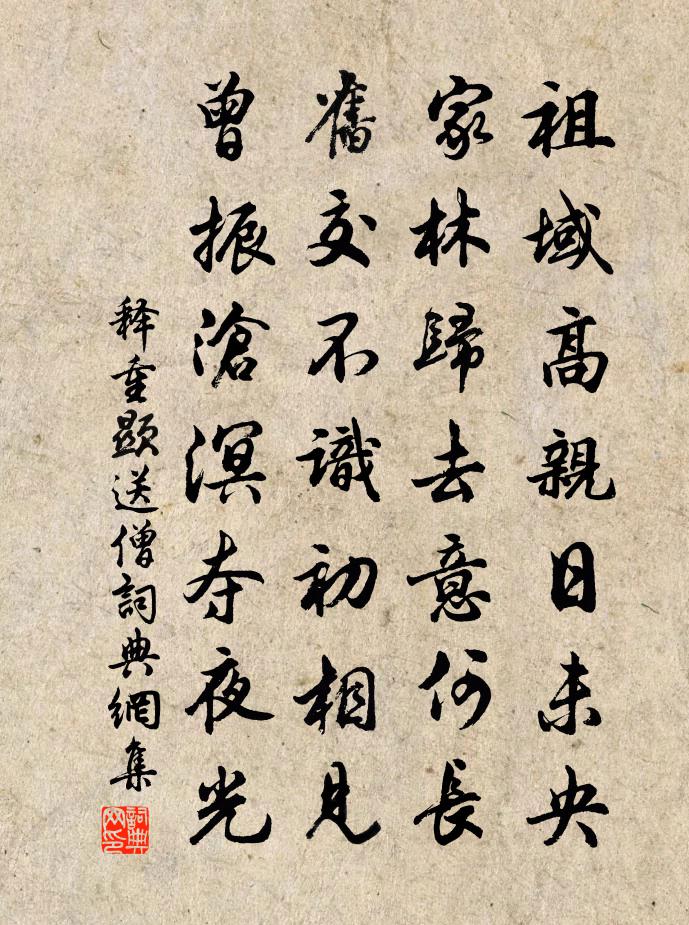 祖域高親日未央
家林歸去意何長
舊交不識初相見
曾振滄溟夺夜光
释重顯送僧詞典網集
詞典网印